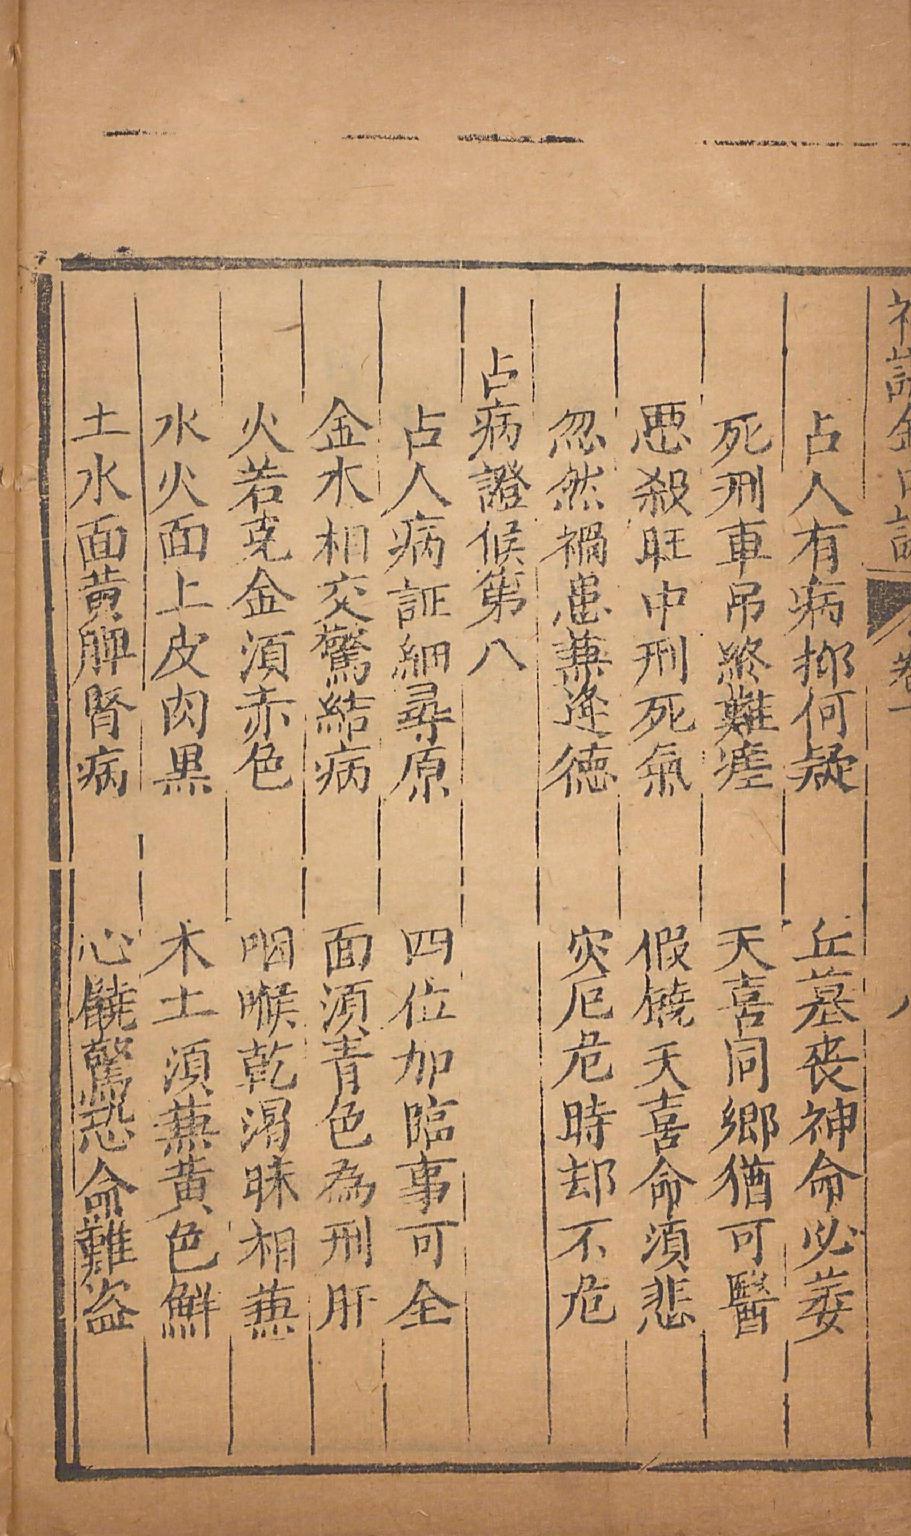 金口訣 卷一 八
占人有病抑何疑 丘墓丧神命必萎
死刑車吊終難瘥 天喜同鄉猶可醫
悪殺旺中刑死氣 假饒天喜命須悲
忽然禍患兼逢德 灾厄危時却不危
占病證候第八
占人病証細尋原 四位加臨事可全
金木相交驚結病 面須青色為刑肝
火若克金須赤色 咽喉乾渴昧相兼
水火面上皮肉黒 木土須兼黃色鮮
土水面黃脾腎病 心饒驚恐命難盗